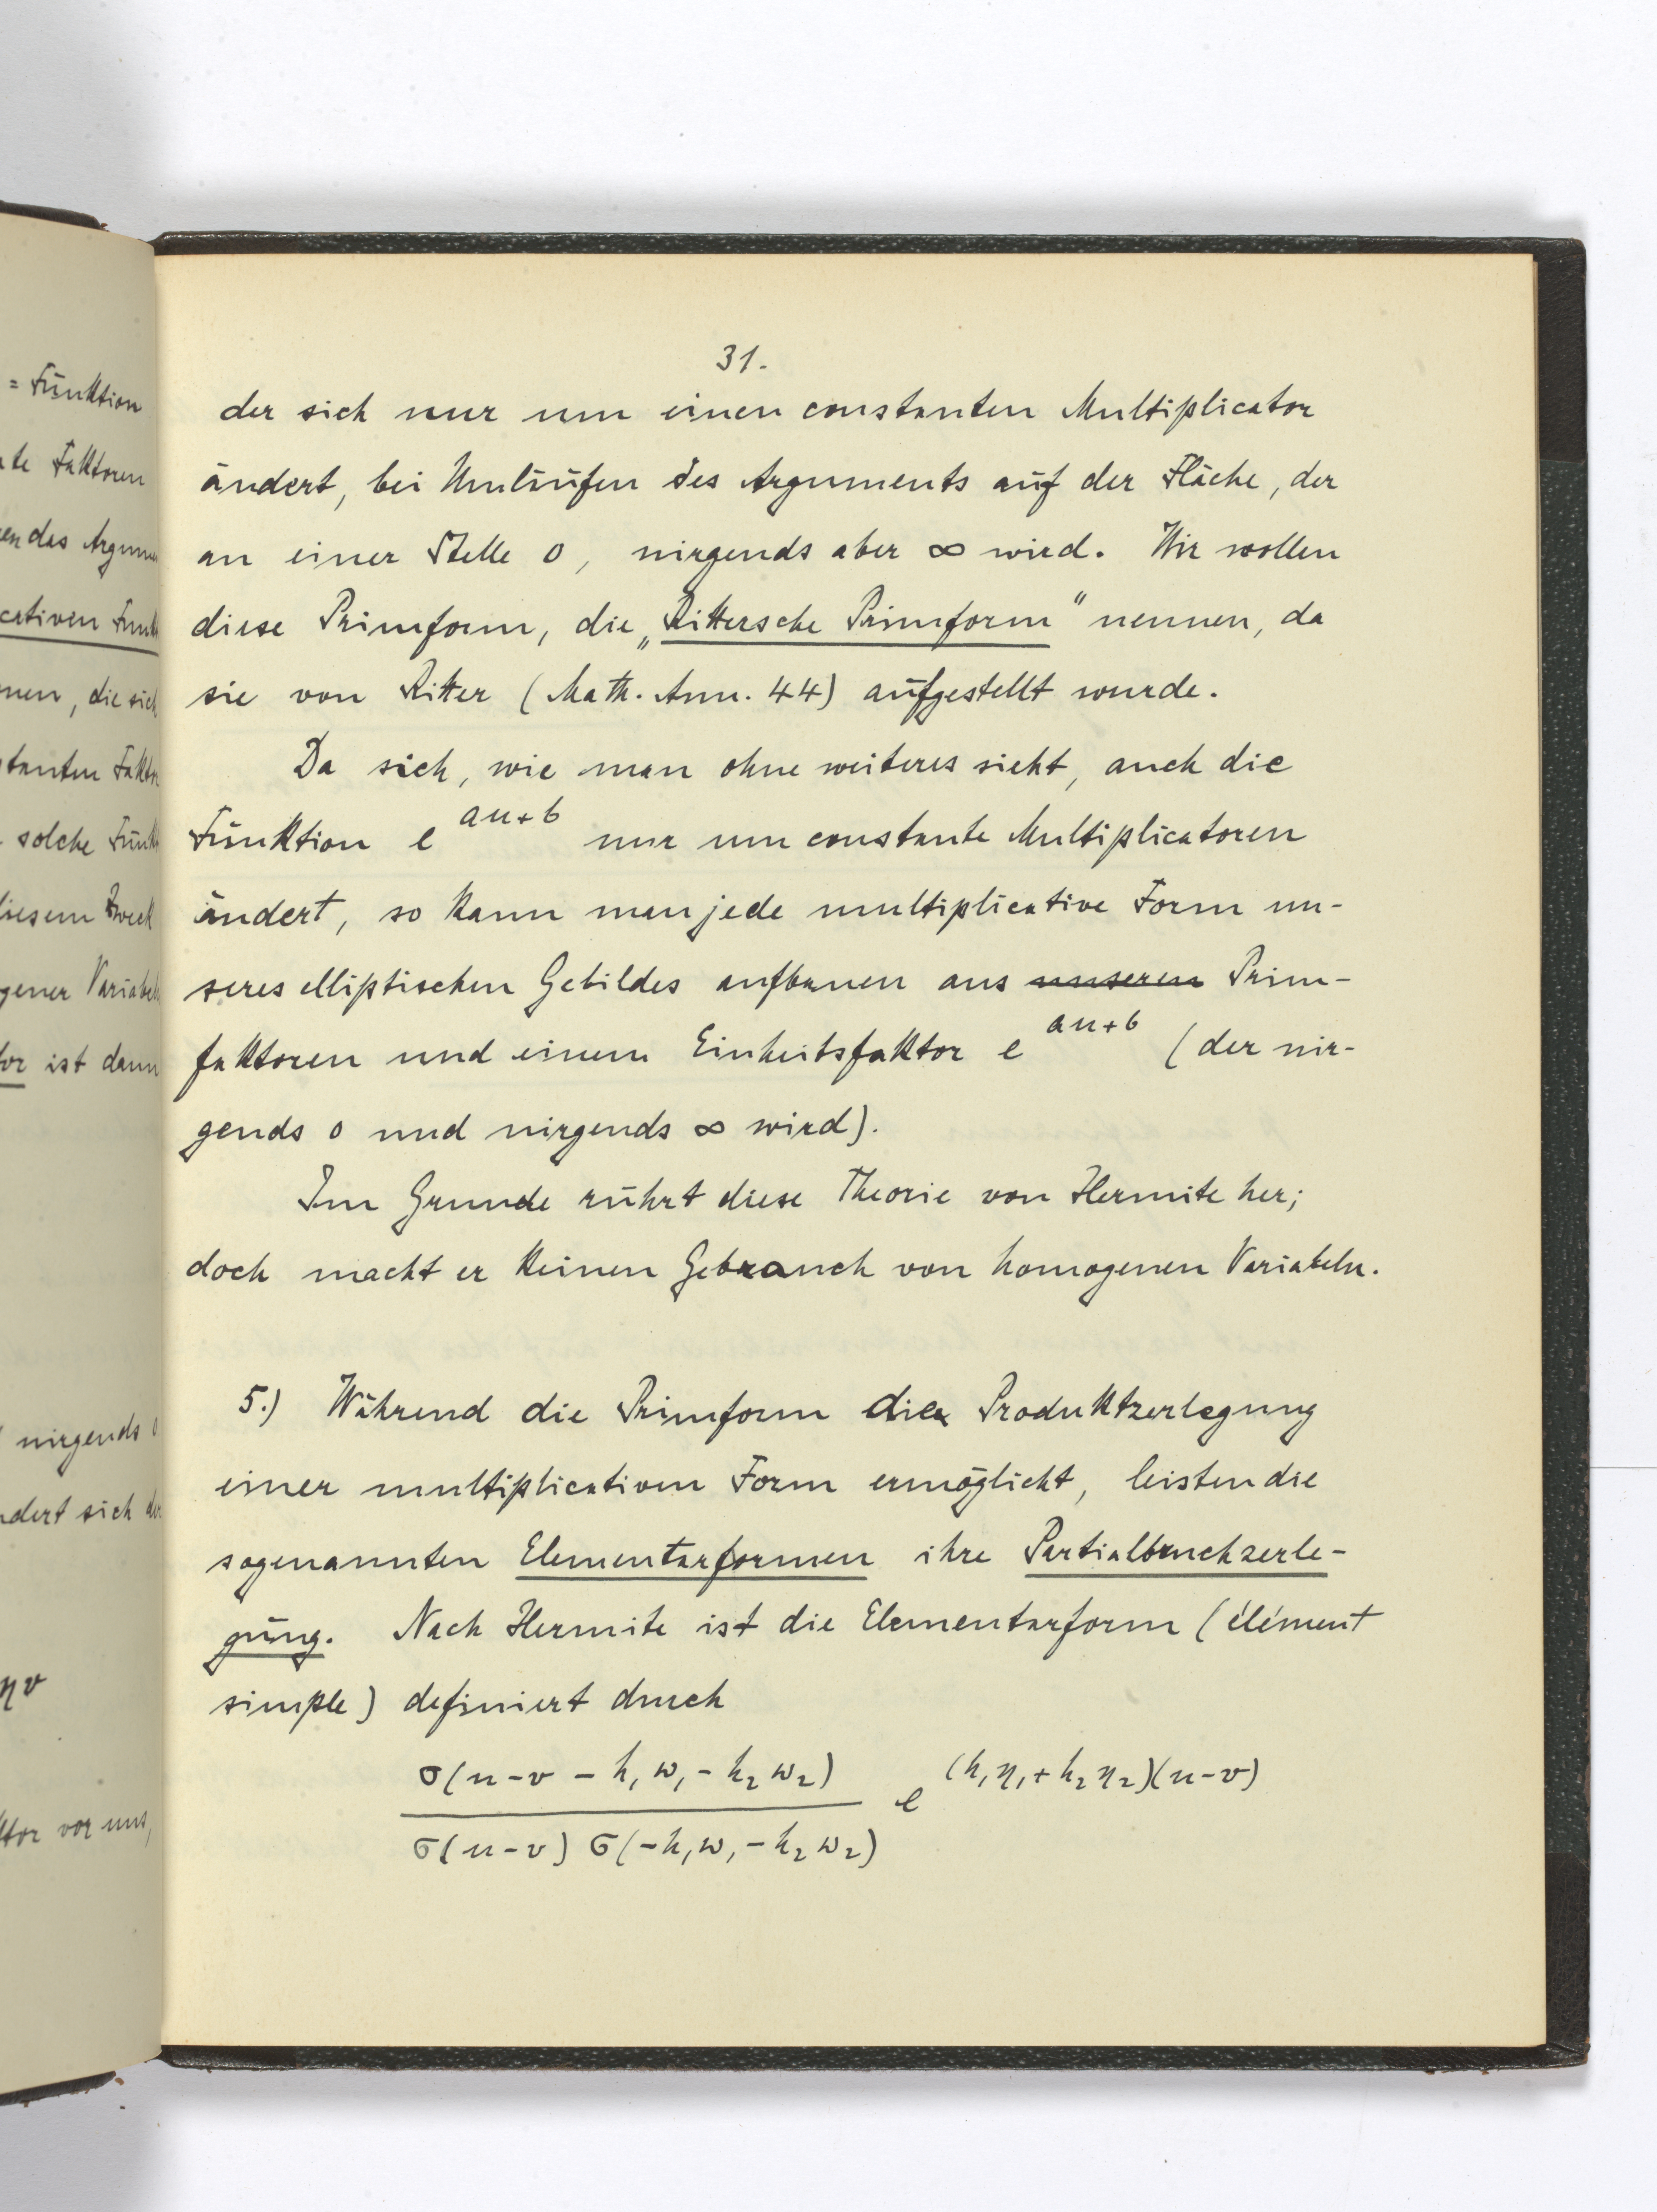 = Funktion
te Faktoren
en das Argum
cativen Funk
nen, die sich
tanten Fakto
solche Funk
diesem Zweck
gener Variabeln
or ist dann
nirgends 0
ndert sich der
ηv
ktor vor uns,
31.
der sich nur um einen constanten Multiplicator
ändert, bei Umläufen des Arguments auf der Fläche, der
an einer Stelle 0, nirgends aber ∞ wird. Wir wollen
diese Primform, die „Rittersche Primform" nennen, da
sie von Ritter (Math. Ann. 44) aufgestellt wurde.
Da sich, wie man ohne weiteres sieht, auch die
Funktion e^{au+b} nur um constante Multiplicatoren
ändert, so kann man jede multiplicative Form un-
seres elliptischen Gebildes aufbauen aus unseren Prim-
faktoren und einem Einheitsfaktor e^{au+b} (der nir-
gends 0 und nirgends ∞ wird).
Im Grunde rührt diese Theorie von Hermite her;
doch macht er keinen Gebrauch von homogenen Variabeln.
5.) Während die Primform die Produktzerlegung
einer multiplicativen Form ermöglicht, leisten die
sogenannten Elementarformen ihre Partialbruchzerle-
gung. Nach Hermite ist die Elementarform (élément
simple) definiert durch
σ(u-v - h₁w₁ - h₂w₂)
e^{(h₁η₁+h₂η₂)(u-v)}
σ(u-v) σ(-h₁w₁-h₂w₂)